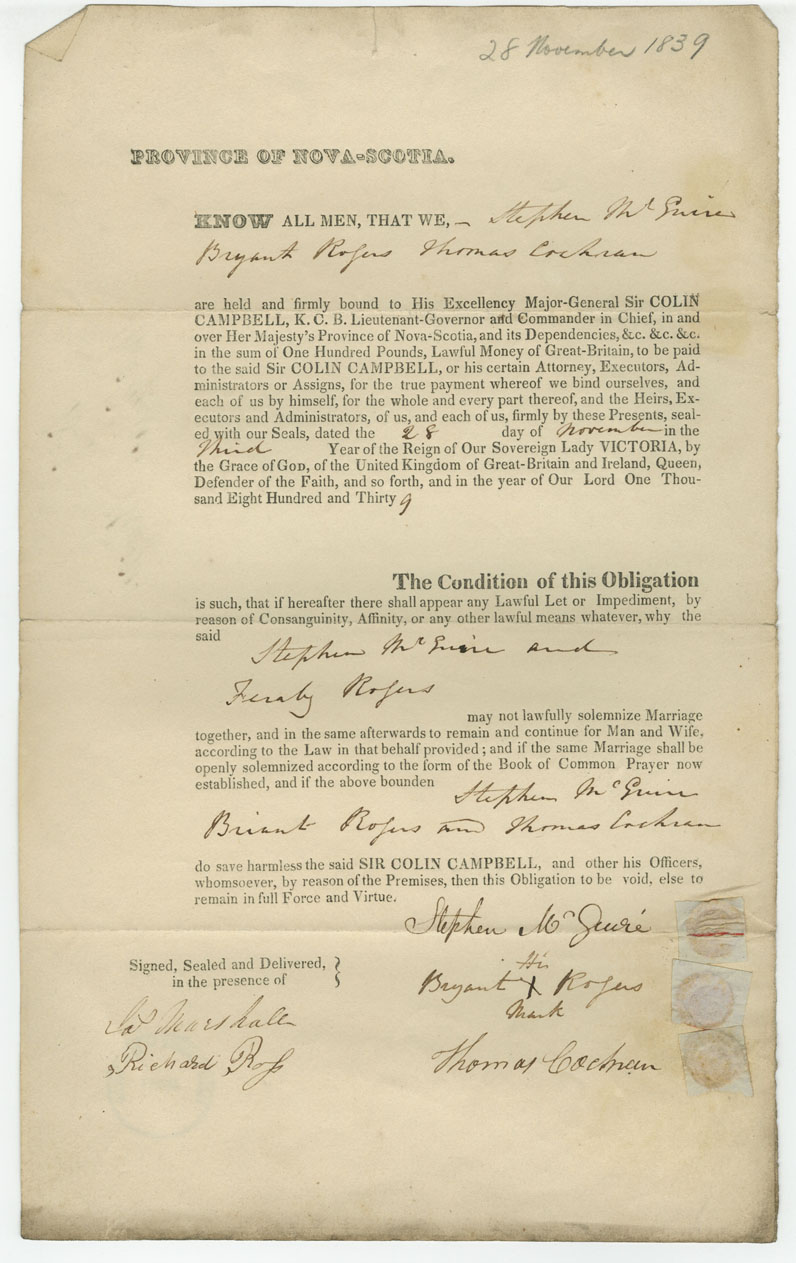 28 November 1839
PROVINCE OF NOVA-SCOTIA.
KNOW ALL MEN, THAT WE, – Stephen Mc Guire
Bryant Rogers Thomas Cochran
are held and firmly bound to His Excellency Major-General Sir COLIN
CAMPBELL, K. C. B. Lieutenant-Governor and Commander in Chief, in and
over Her Majesty's Province of Nova-Scotia, and its Dependencies, &c. &c. &c.
in the sum of One Hundred Pounds, Lawful Money of Great-Britain, to be paid
to the said Sir COLIN CAMPBELL, or his certain Attorney, Executors, Ad-
ministrators or Assigns, for the true payment whereof we bind ourselves, and
each of us by himself, for the whole and every part thereof, and the Heirs, Ex-
ecutors and Administrators, of us, and each of us, firmly by these Presents, seal-
ed with our Seals, dated the 28 day of November in the
Third Year of the Reign of Our Sovereign Lady VICTORIA, by
the Grace of GOD, of the United Kingdom of Great-Britain and Ireland, Queen,
Defender of the Faith, and so forth, and in the year of Our Lord One Thou-
sand Eight Hundred and Thirty 9
The Condition of this Obligation
is such, that if hereafter there shall appear any Lawful Let or Impediment, by
reason of Consanguinity, Affinity, or any other lawful means whatever, why the
said
Stephen Mc Guire and
Feraby Rogers
may not lawfully solemnize Marriage
together, and in the same afterwards to remain and continue for Man and Wife,
according to the Law in that behalf provided ; and if the same Marriage shall be
openly solemnized according to the form of the Book of Common Prayer now
established, and if the above bounden Stephen Mc Guire
Briant Rogers and Thomas Cochran
do save harmless the said SIR COLIN CAMPBELL, and other his Officers,
whomsoever, by reason of the Premises, then this Obligation to be void, else to
remain in full Force and Virtue.
Stephen Mc Guire
Signed, Sealed and Delivered,
in the presence of
His
Bryant X Rogers
Mark
Jas Marshall
Richard Ross
Thomas Cochran